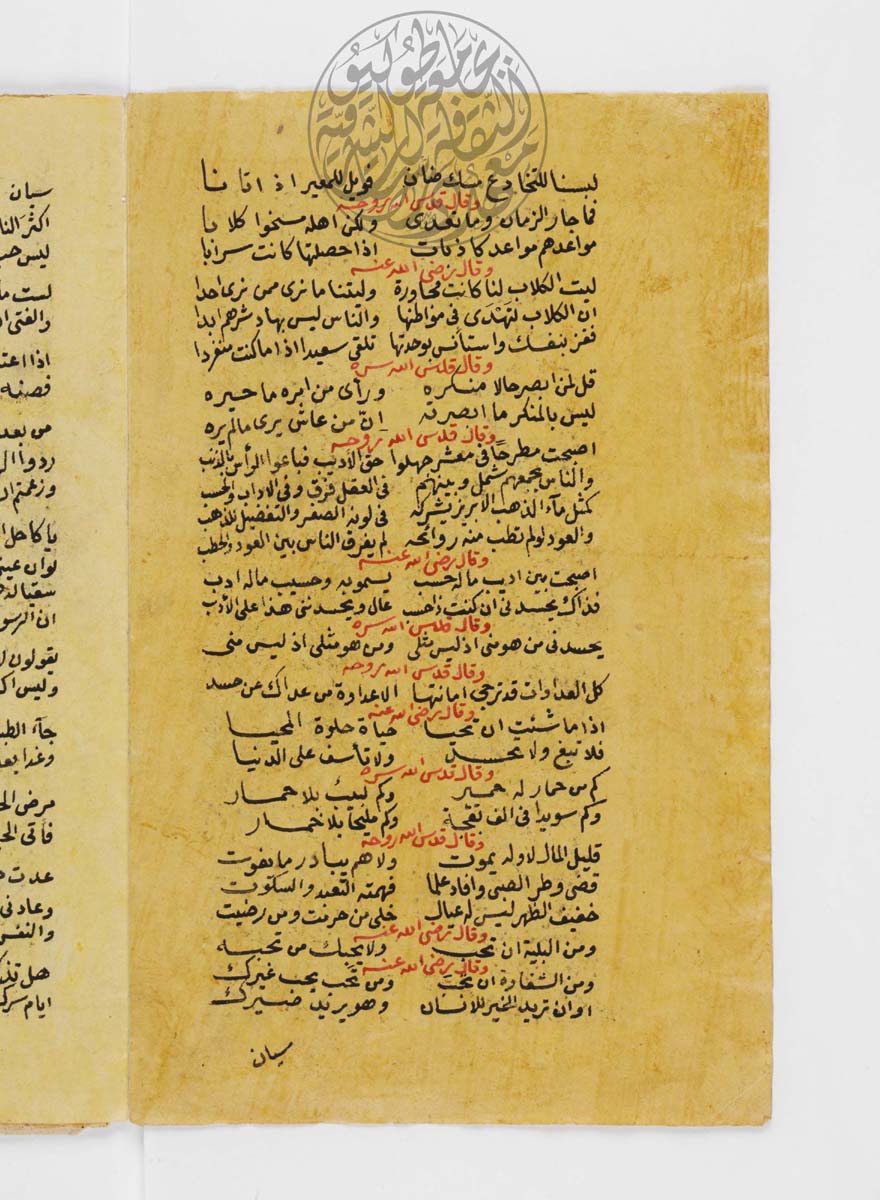 لبسنا للتخادع مسك ضأن فويل للمغير اذ اتانا
وقال قدس الله روحه
فما جار الزمان وما تعدى ولكن اهله مسخوا كلابا
مواعدهم مواعد كاذبات اذا حصلتها كانت سرابا
وقال رضى الله عنه
ليت الكلاب لنا كانت مجاورة وليتنا ما نرى ممن نرى احدا
ان الكلاب لتهدى فى مواطنها والناس ليس بهاد شرهم ابدا
ففز بنفسك واستأنس بوحدتها تلقى سعيدا اذا ما كنت منفردا
وقال قدس الله سره
قل لمن ابصر حالا منكره ورأى من امره ما حيره
ليس بالمنكر ما ابصرته ان من عاش يرى ما لم يره
وقال قدس الله روحه
اصبحت مطرحا فى معشر جهلوا حق الاديب فباعوا الرأس بالذنب
والناس يجمعهم شمل وبينهم فى العقل فرق وفى الاداب والحسب
كمثل مآء الذهب الابريز يشركه فى لونه الصفر والتفضيل للذهب
والعود لو لم تطب منه روائحه لم يفرق الناس بين العود والحطب
وقال رضى الله عنه
اصبحت بين اديب ماله حسب يسمو به وحسيب ماله ادب
فذاك يحسدنى ان كنت ذا حسب عال ويحسدنى هذا على الادب
وقال قدس الله سره
يحسدنى من هو منى اذ ليس مثلى ومن هو مثلى اذ ليس منى
وقال قدس الله روحه
كل العداوات قد ترجى اماتتها الا عداوة من عداك عن حسد
وقال رضى الله عنه
اذا ما شئت ان تحيا حياة حلوة المحيا
فلا تبغ ولا تحسد ولا تأسف على الدنيا
وقال قدس الله سره
كم من حمار له حمير وكم لبيب بلا حمار
وكم سويدا فى الف بقجة وكم مليحا بلا خمار
وقال قدس الله روحه
قليل المال لا ولد يموت ولا هم يبادر ما يفوت
قضى وطر الصبى وافاد علما فهمته التعبد والسكوت
خفيف الظهر ليس له عيال خلى من حرمت ومن رضيت
وقال رضى الله عنه
ومن البلية ان تحب ولا يحبك من تحبه
وقال رضى الله عنه
ومن الشقاوة ان تحب ومن تحب يحب غيرك
او ان تريد الخير للانسان وهو يريد ضيرك
سيان